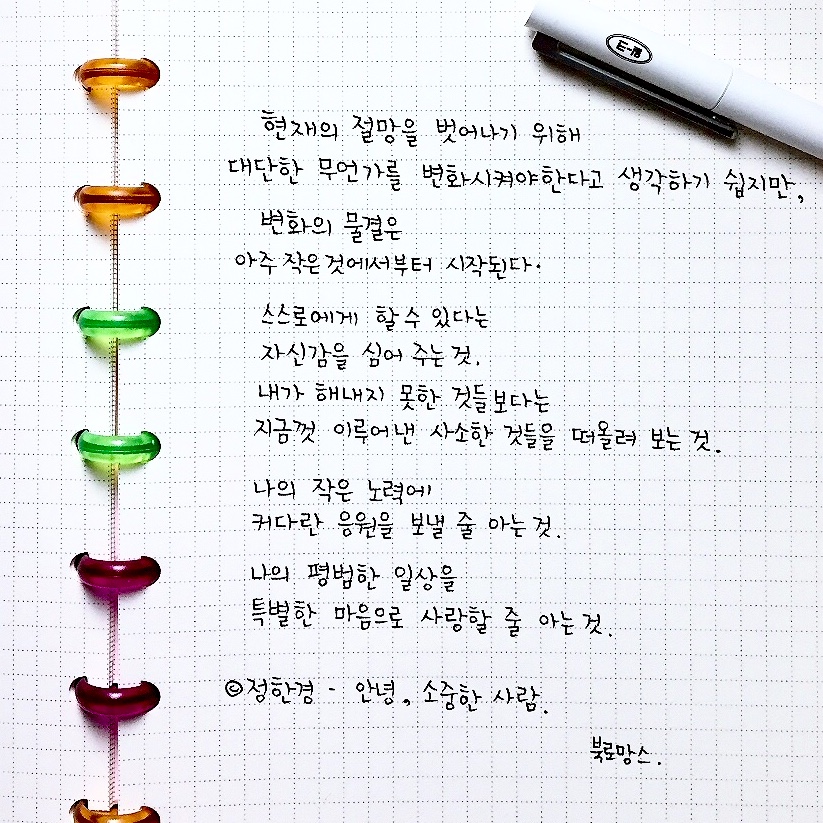 현재의 절망을 벗어나기 위해
대단한 무언가를 변화시켜야한다고 생각하기 쉽지만,
변화의 물결은
아주 작은 것에서부터 시작된다.
스스로에게 할 수 있다는
자신감을 심어 주는 것.
내가 해내지 못한 것들보다는
지금껏 이루어낸 사소한 것들을 떠올려 보는 것.
나의 작은 노력에
커다란 응원을 보낼 줄 아는 것.
나의 평범한 일상을
특별한 마음으로 사랑할 줄 아는 것.
©정한경 - 안녕, 소중한 사람.
북로망스.